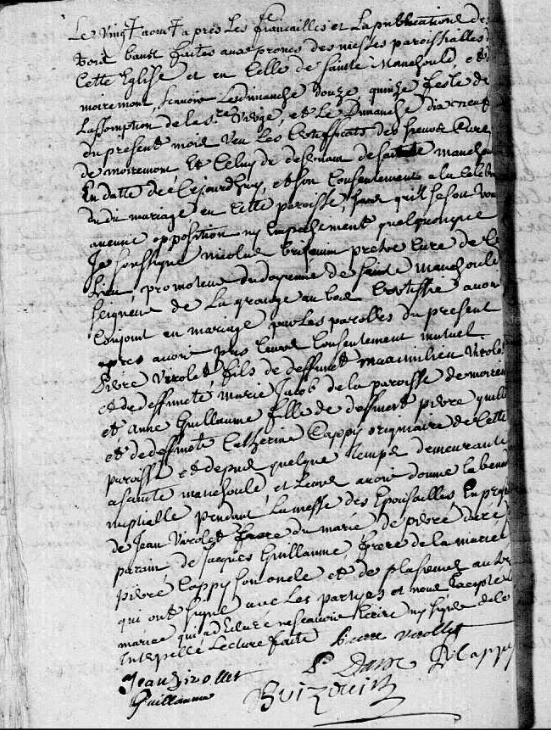 Le vingt aoust apres Les fiancailles et La publication des
trois bans faites aux prones des messes paroissialles de
Cette Eglise et en Celle de sainte Manehould, et
moiremont, scavoir Le dimanche douze, quinze feste de
Lassomption de la ste Vierge, et Le Dimanche dix neuf
du present mois Veu les Certifficats des sieurs Curez
de moiremont et Celuy de de sainte manehould
En datte de Cejourdhuy, et son Consentement a la Celebra
du mariage en Cette paroisse, sans qu'il se soit trouvé
aucune opposition ny Empechement quelquonque
Je soussigne nicolas pretre Curé de Ce
Lieu, promoteur du doyenne de sainte manehould
seigneur de La grange au bois Certiffie avoir
Conjoint en mariage par les parolles du present
apres avoir pris Leurs Consentement mutuel
Pierre Verolet fils de deffunt maximilien Verolet
et de deffuncte marie Jacob de la paroisse de moirem
et Anne Guillaume fille de deffunct pierre guill
et de deffuncte Catherine Cappy originaire de Cette
paroisse et depuis quelque temps demeurante
a sainte manehould et Leurs avoir donné la bened
nuptialle pendant La messe des Epousailles En pres
de Jean Verolet frere du marié de pierre
parain de Jacques Guillaume, frere de la mariée
pierre Cappy son oncle et de plusieurs autres
qui ont signé avec Les partyes et nous Excepté la
mariee qui a declaré ne scavoir Ecrire ny signer de ce
Interpellé Lecture faite pierre verollet
Jean Virollet P Dame P Cappy
Guillaume